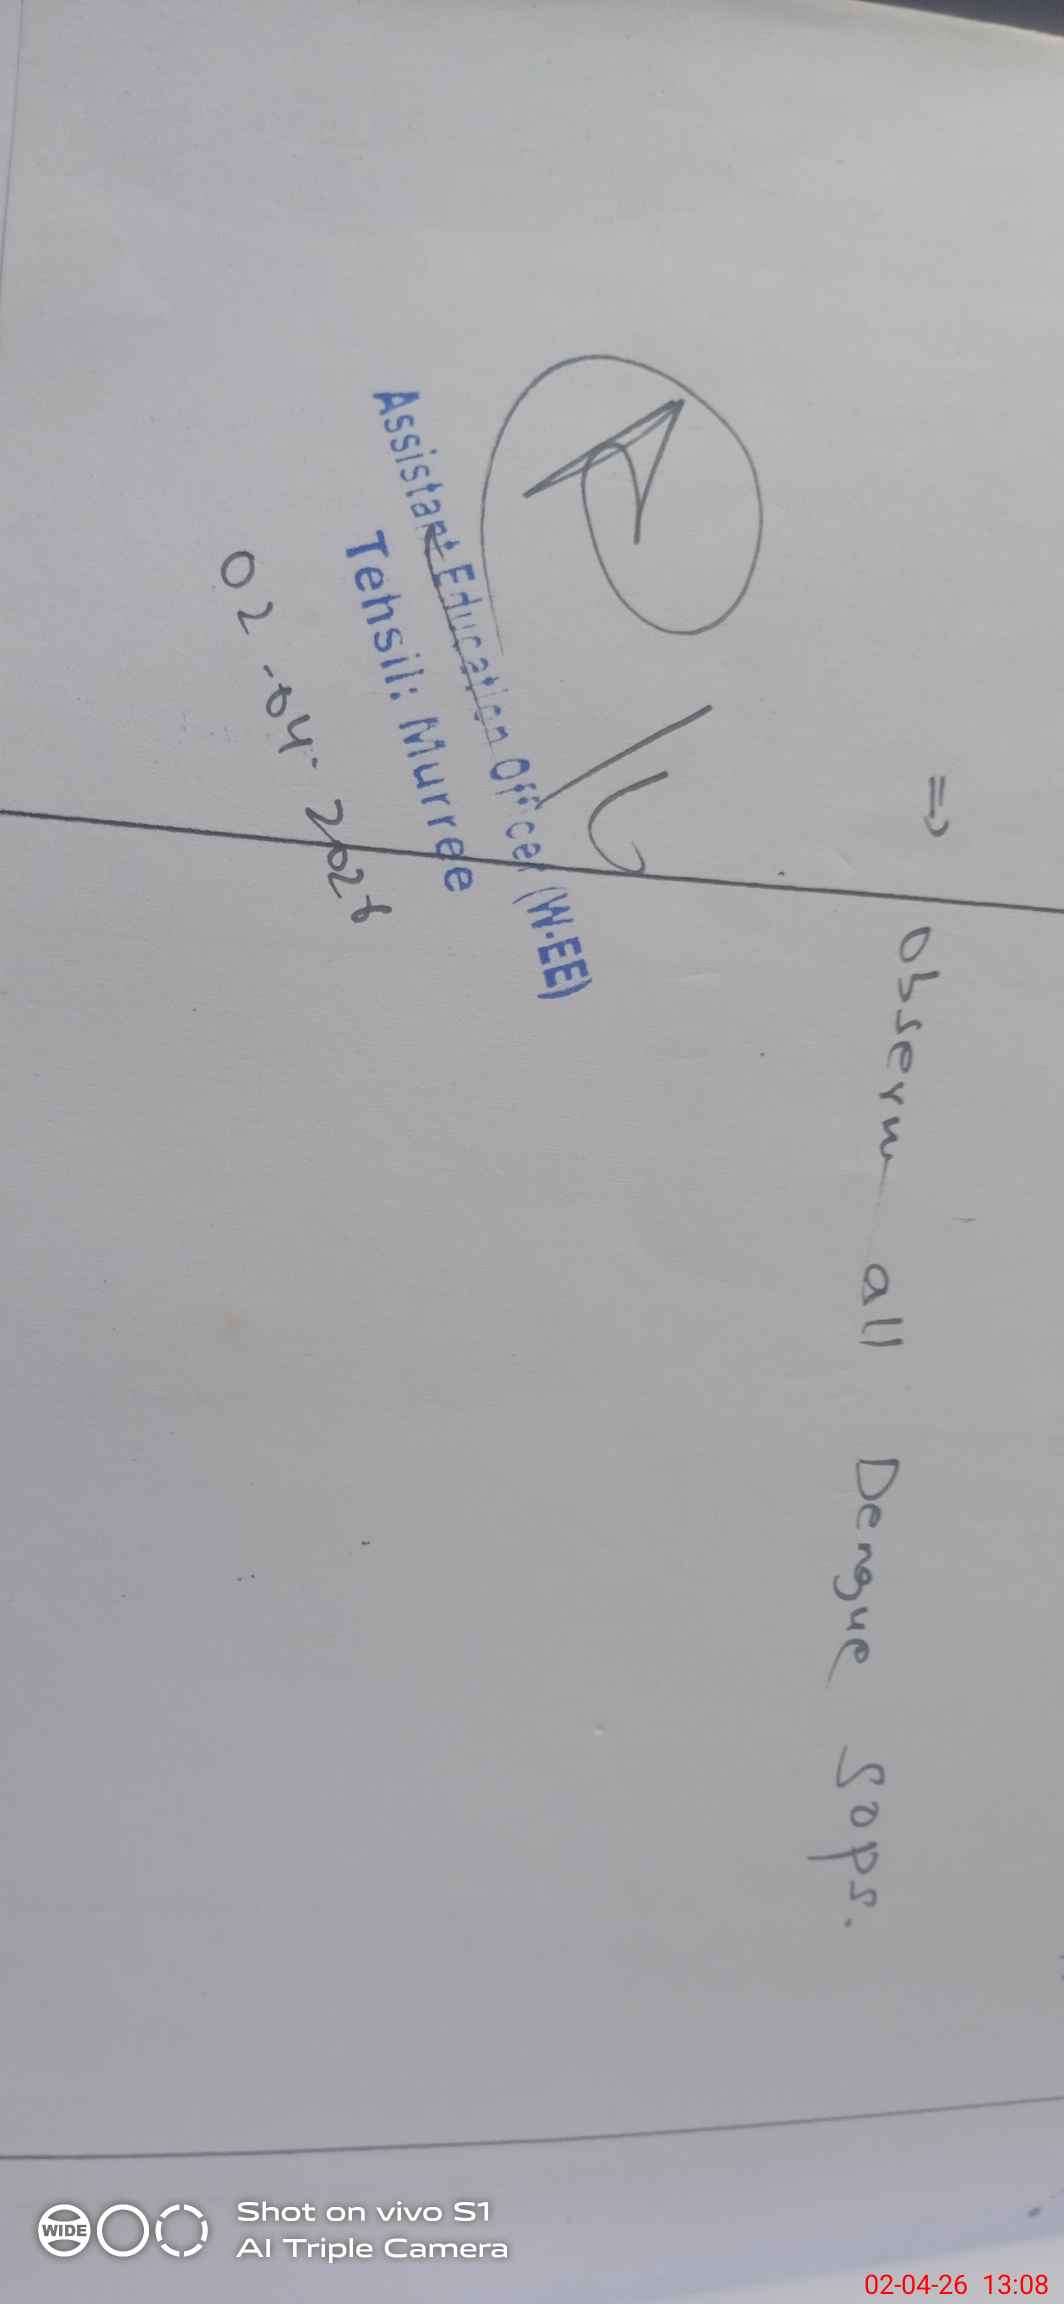 ⇒ Observe all Dengue Sops.
Assistant Education Officer (W-EE)
Tehsil: Murree
02-04-2026
Shot on vivo S1
AI Triple Camera
WIDE
02-04-26 13:08